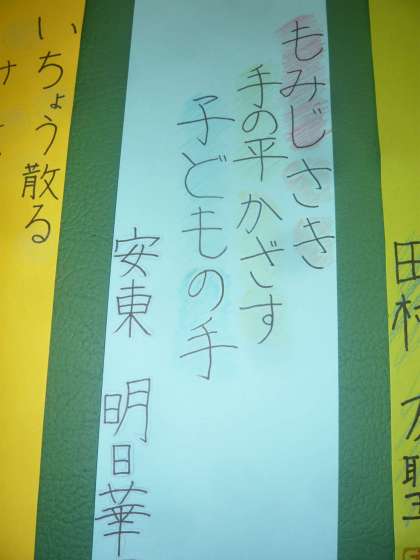 もみじさき
手の平かざす
子どもの手
安東 明日華
いちょう散る